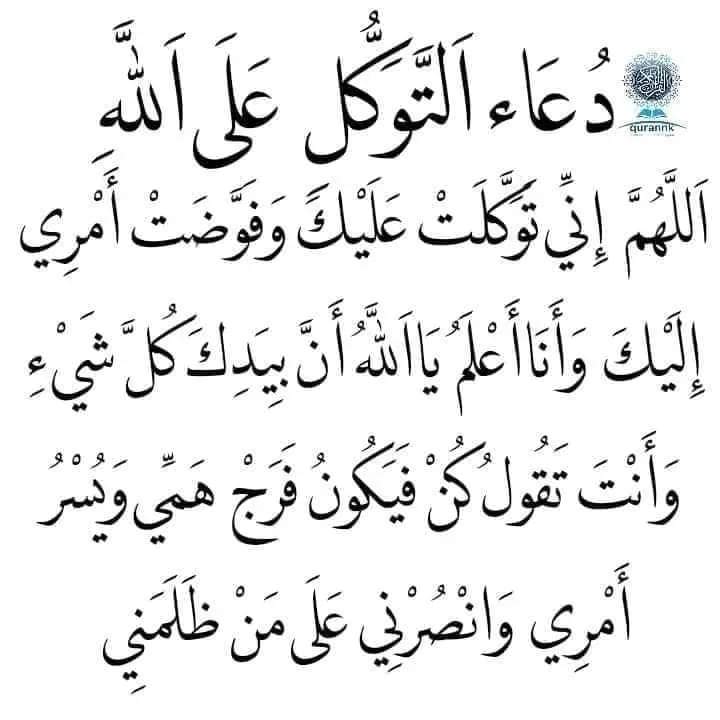 دُعَاء اَلتَّوَكُّل عَلَى اَللَّهِ
qurannk
اَللَّهُمَّ إِنِّي تَوَكَّلَتْ عَلَيْكَ وَفَوَّضَتْ أَمْرِي
إِلَيْكَ وَأَنَا أَعْلَمُ يَا اَللَّهُ أَنَّ بِيَدِكَ كُلَّ شَيْءِ
وَأَنْتَ تَقُولُ كُنْ فَيَكُونُ فَرَجْ هَمِّي وَيُسْرُ
أَمْرِي وَانْصُرْنِي عَلَى مَنْ ظَلَمَنِي